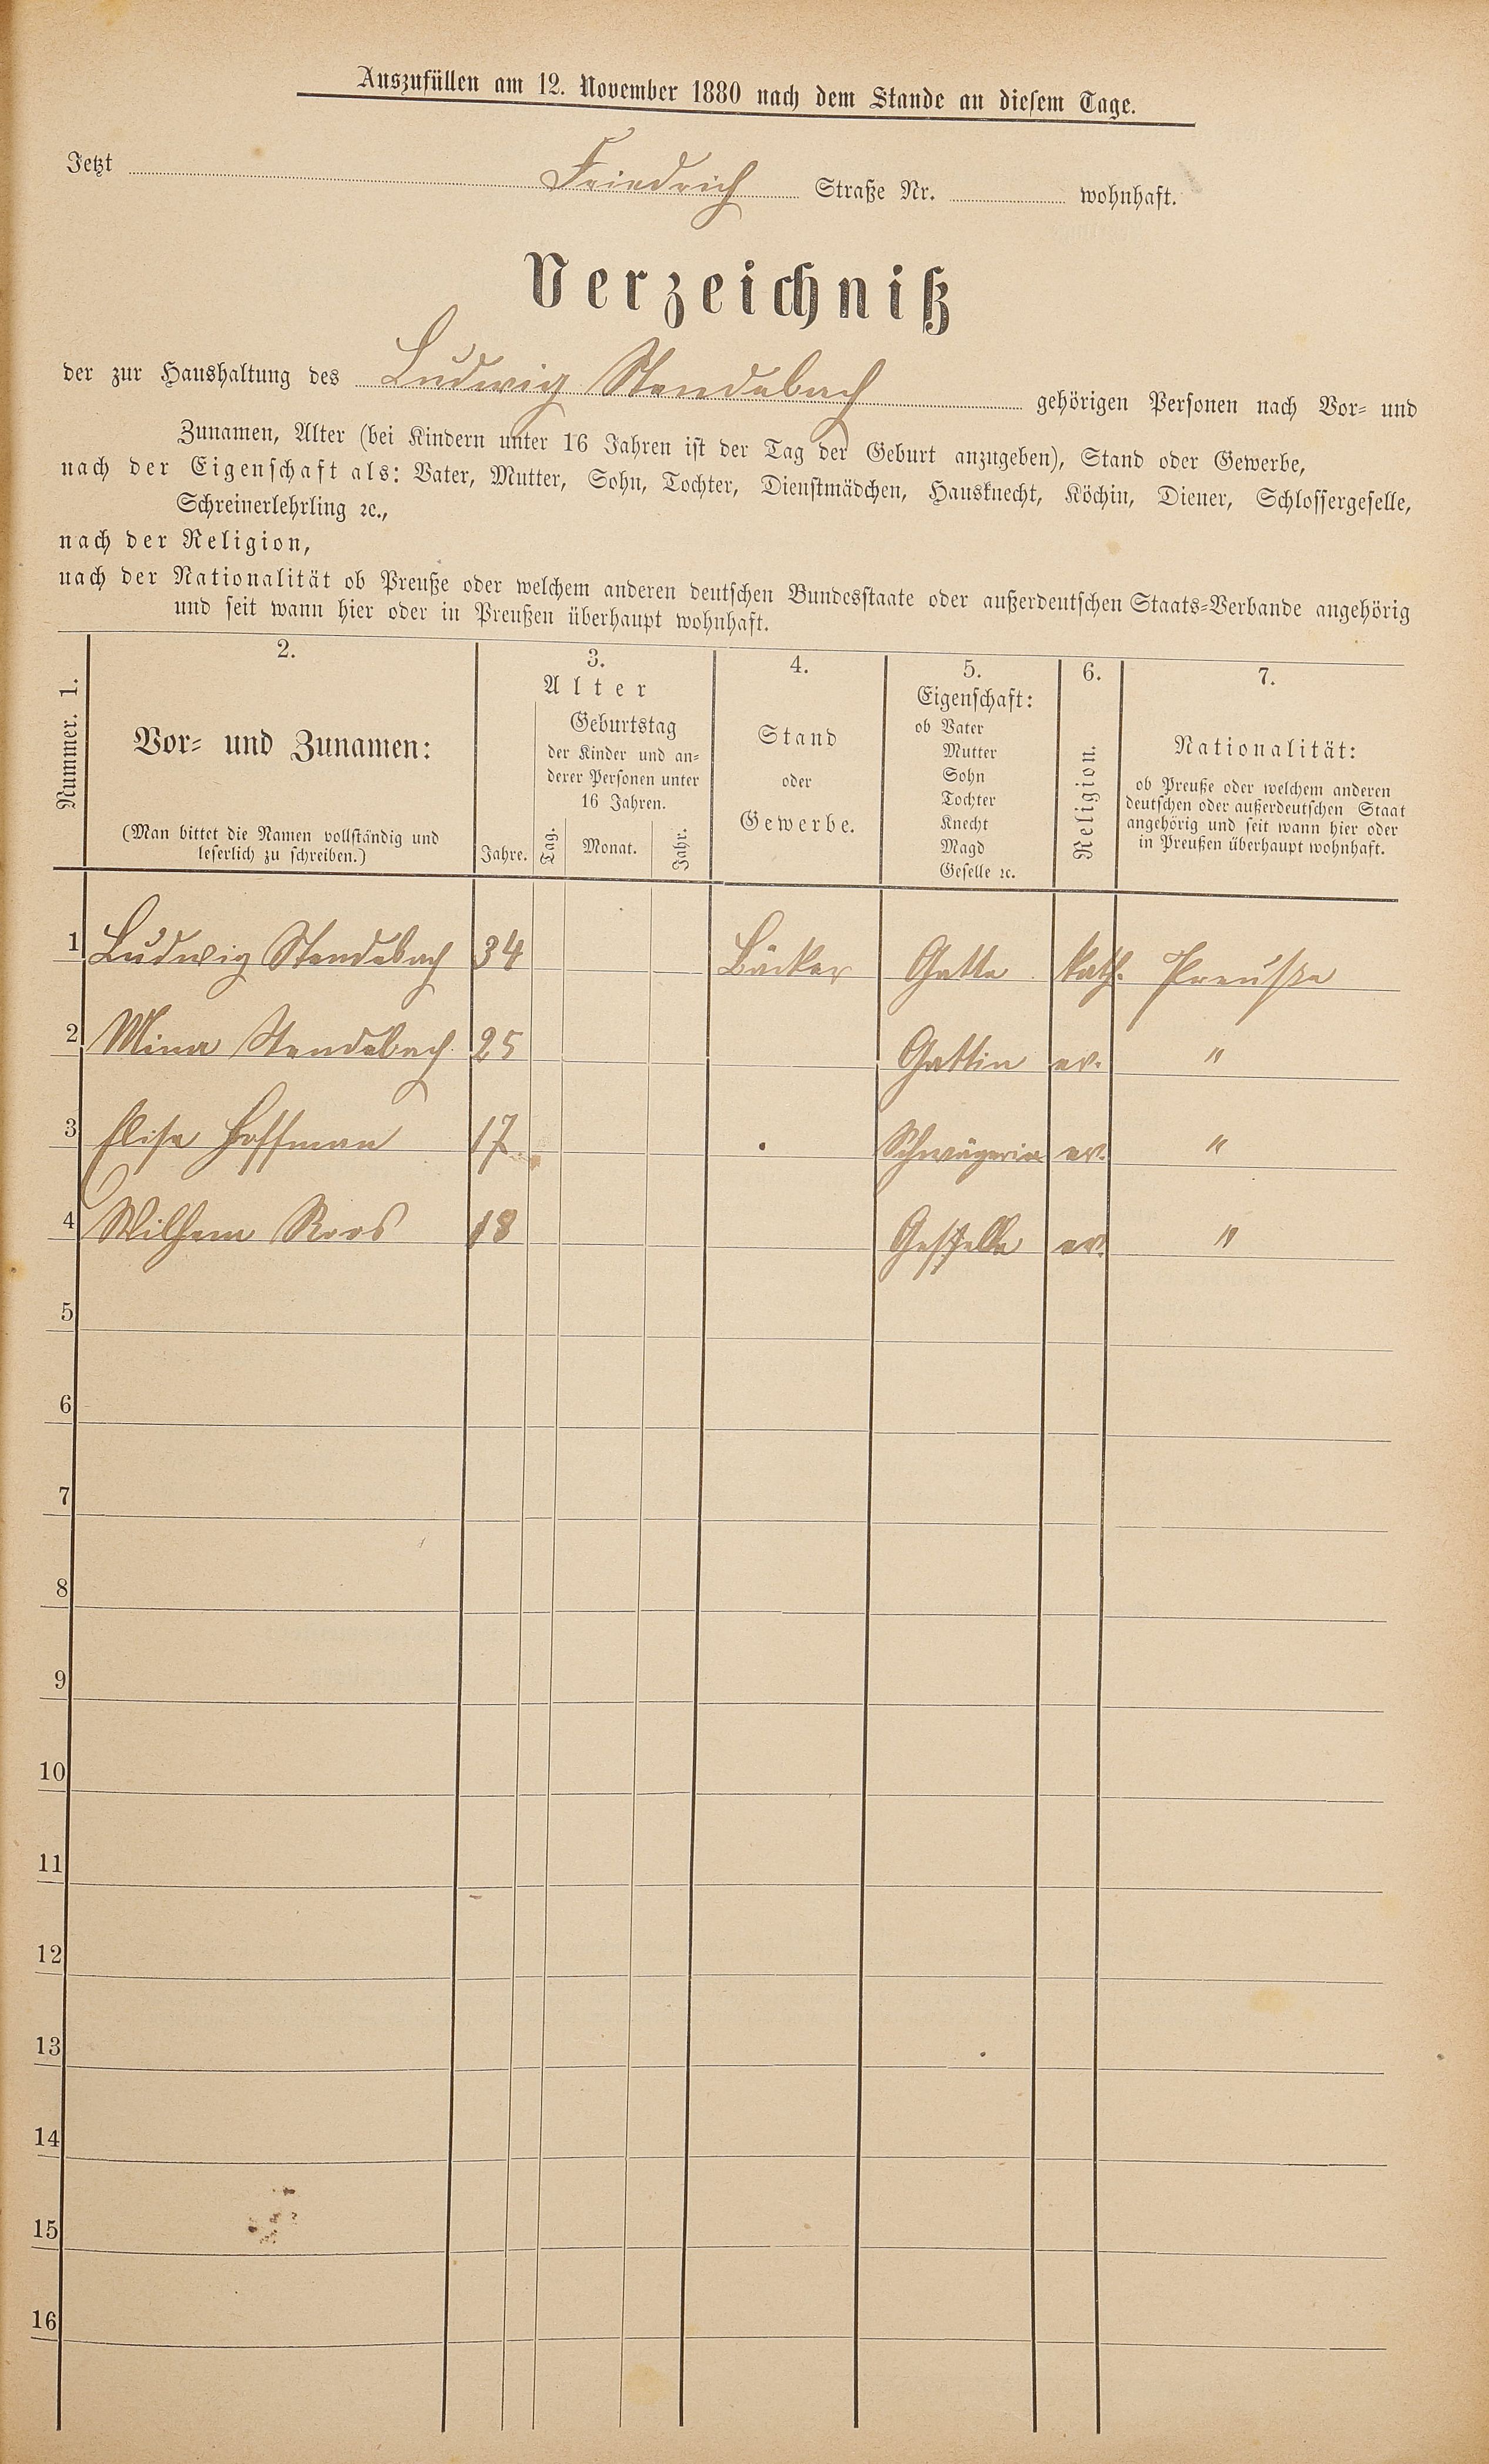 Auszufüllen am 12. November 1880 nach dem Stande an diesem Tage.
Jetzt Friedrich Straße Nr. wohnhaft.
Verzeichniß
der zur Haushaltung des Ludwig Stendebach gehörigen Personen nach Vor- und
Zunamen, Alter (bei Kindern unter 16 Jahren ist der Tag der Geburt anzugeben), Stand oder Gewerbe,
nach der Eigenschaft als: Vater, Mutter, Sohn, Tochter, Dienstmädchen, Hausknecht, Köchin, Diener, Schlossergeselle,
Schreinerlehrling ꝛc.,
nach der Religion,
nach der Nationalität ob Preuße oder welchem anderen deutschen Bundesstaate oder außerdeutschen Staats-Verbande angehörig
und seit wann hier oder in Preußen überhaupt wohnhaft.
Nummer. 1.
2.
Vor- und Zunamen:
(Man bittet die Namen vollständig und
leserlich zu schreiben.)
3.
Alter
Jahre.
Geburtstag
der Kinder und an-
derer Personen unter
16 Jahren.
Tag. Monat. Jahr.
4.
Stand
oder
Gewerbe.
5.
Eigenschaft:
ob Vater
Mutter
Sohn
Tochter
Knecht
Magd
Geselle ꝛc.
6.
Religion.
7.
Nationalität:
ob Preuße oder welchem anderen
deutschen oder außerdeutschen Staat
angehörig und seit wann hier oder
in Preußen überhaupt wohnhaft.
1 Ludwig Stendebach 34 Bäcker Gatte kath. Preuße
2 Mina Stendebach 25 Gattin ev. "
3 Elise Hoffman 17 Schwägerin ev. "
4 Wilhem Roos 18 Gesselle ev. "
5
6
7
8
9
10
11
12
13
14
15
16